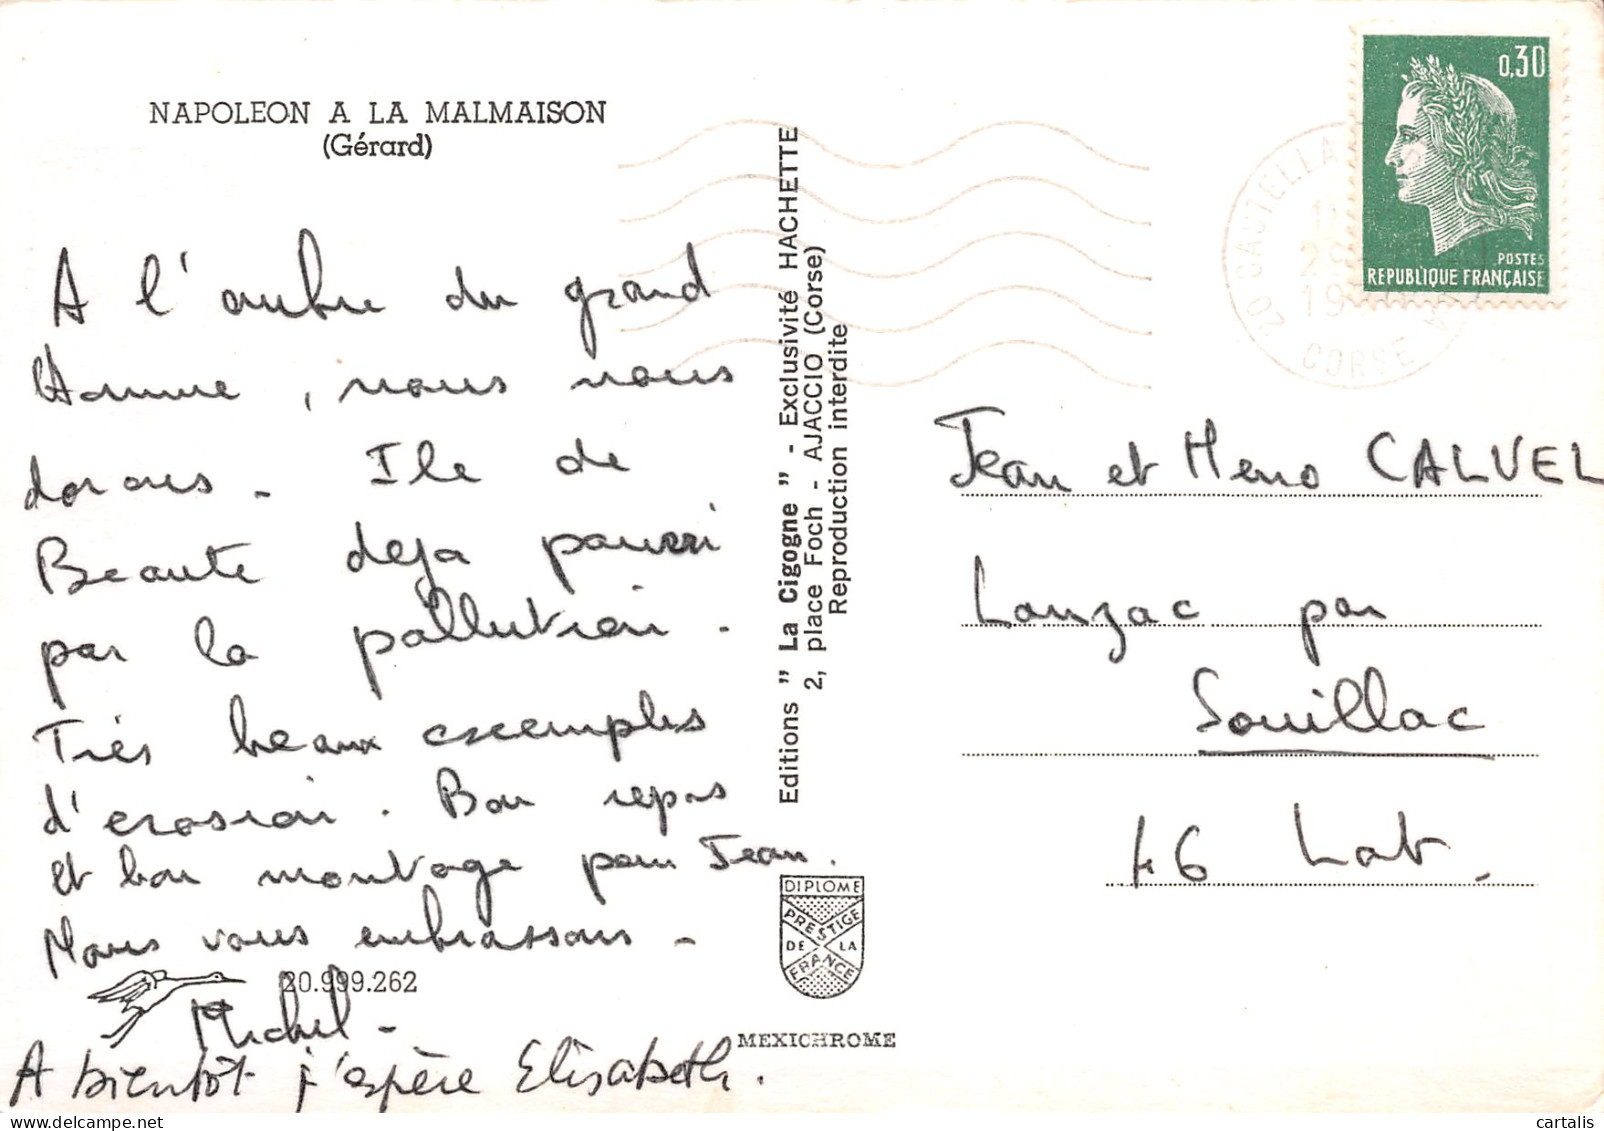 NAPOLEON A LA MALMAISON
(Gérard)
A l'ombre du grand
Homme, nous nous
dorons - Ile de
Beauté deja pourri
par la pollution -
Très beaux exemples
d'erosion. Bon repos
et bon montage pour Jean.
Nous vous embrassons -
20.999.262
Michel -
A bientôt j'espère Elisabeth.
Editions " La Cigogne " - Exclusivité HACHETTE
2, place Foch - AJACCIO (Corse)
Reproduction interdite
DIPLOME
PRESTIGE
DE LA
FRANCE
MEXICHROME
0,30
POSTES
REPUBLIQUE FRANÇAISE
20
CORSE
Jean et CALVEL
Lanzac par
Souillac
46 Lot.
cartalis